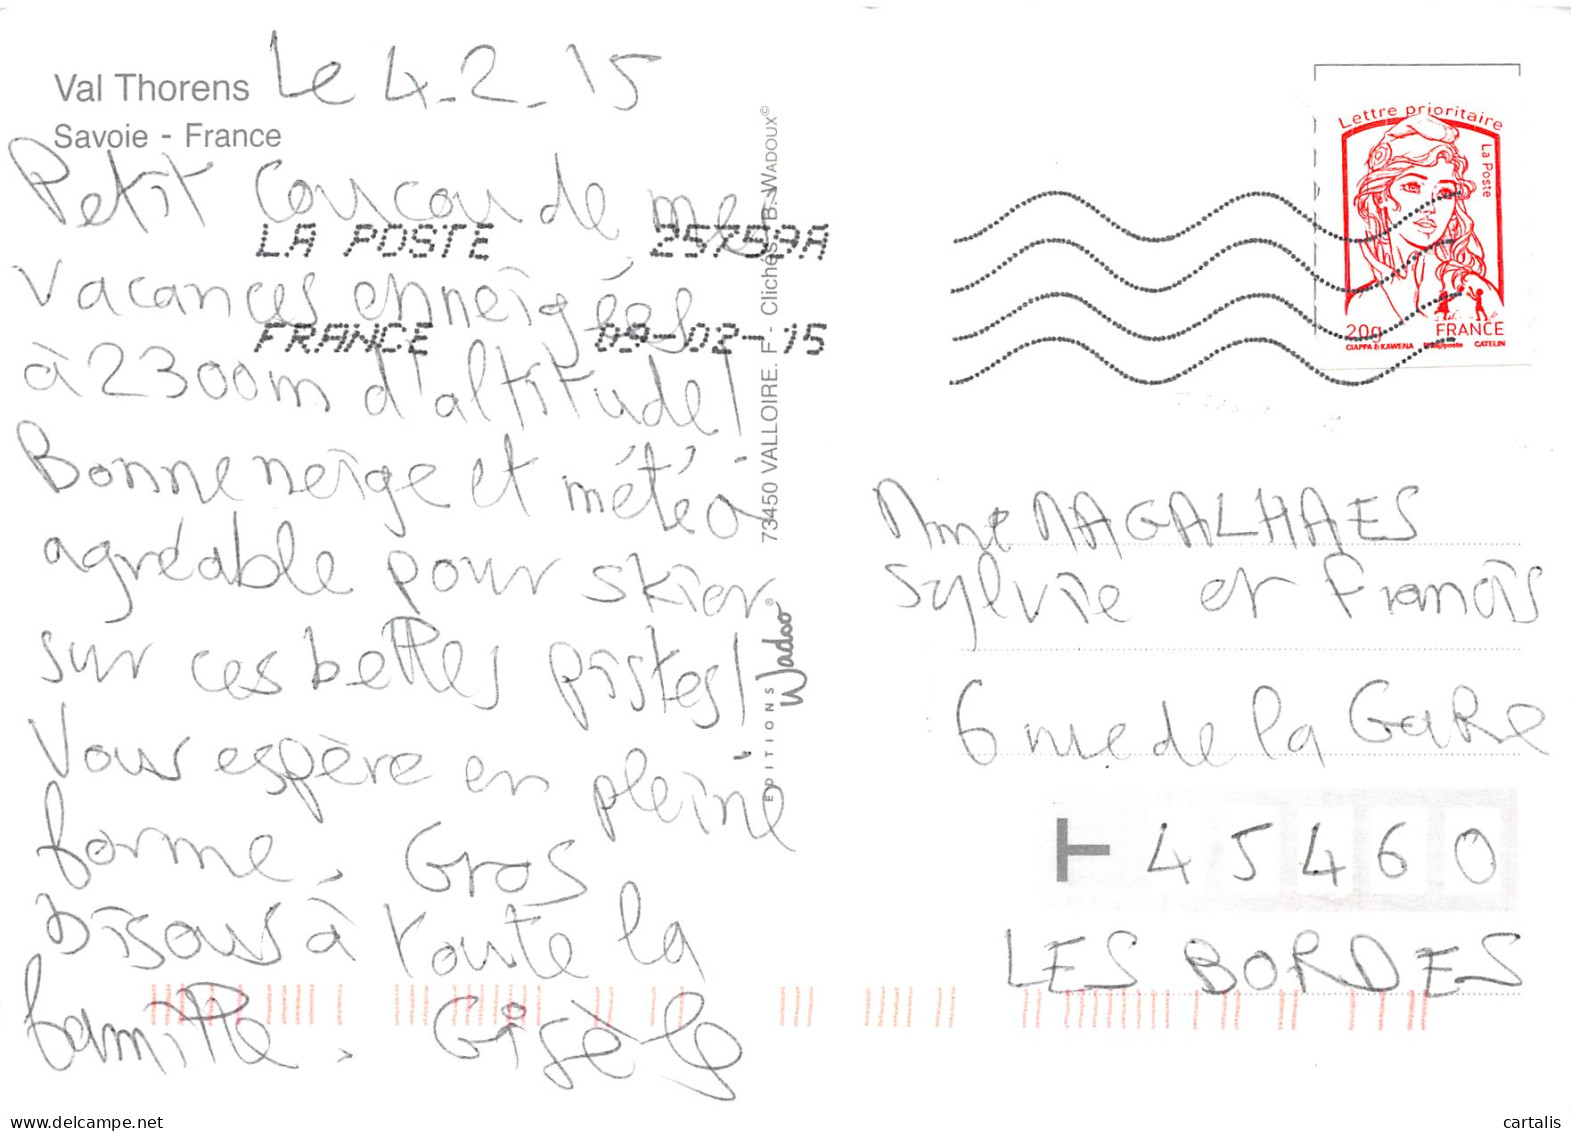 Val Thorens
Le 4.2.15
Savoie - France
Petit coucou de mes
vacances enneigées
à 2300m d'altitude!
Bonne neige et météo
agréable pour skier
sur ces belles pistes!
Vous espère en pleine
forme. Gros
bisous à toute la
famille. Gisèle
LA POSTE 25759A
FRANCE 09-02-15
EDITIONS Wadoo® 73450 VALLOIRE. F - Clichés B. WADOUX©
Lettre prioritaire
La Poste
20g FRANCE
CIAPPA & KAWENA Phil@poste CATELIN
Mme MAGALHAES
Sylvie et Francis
6 rue de la GaRe
45460
LES BORDES
cartalis